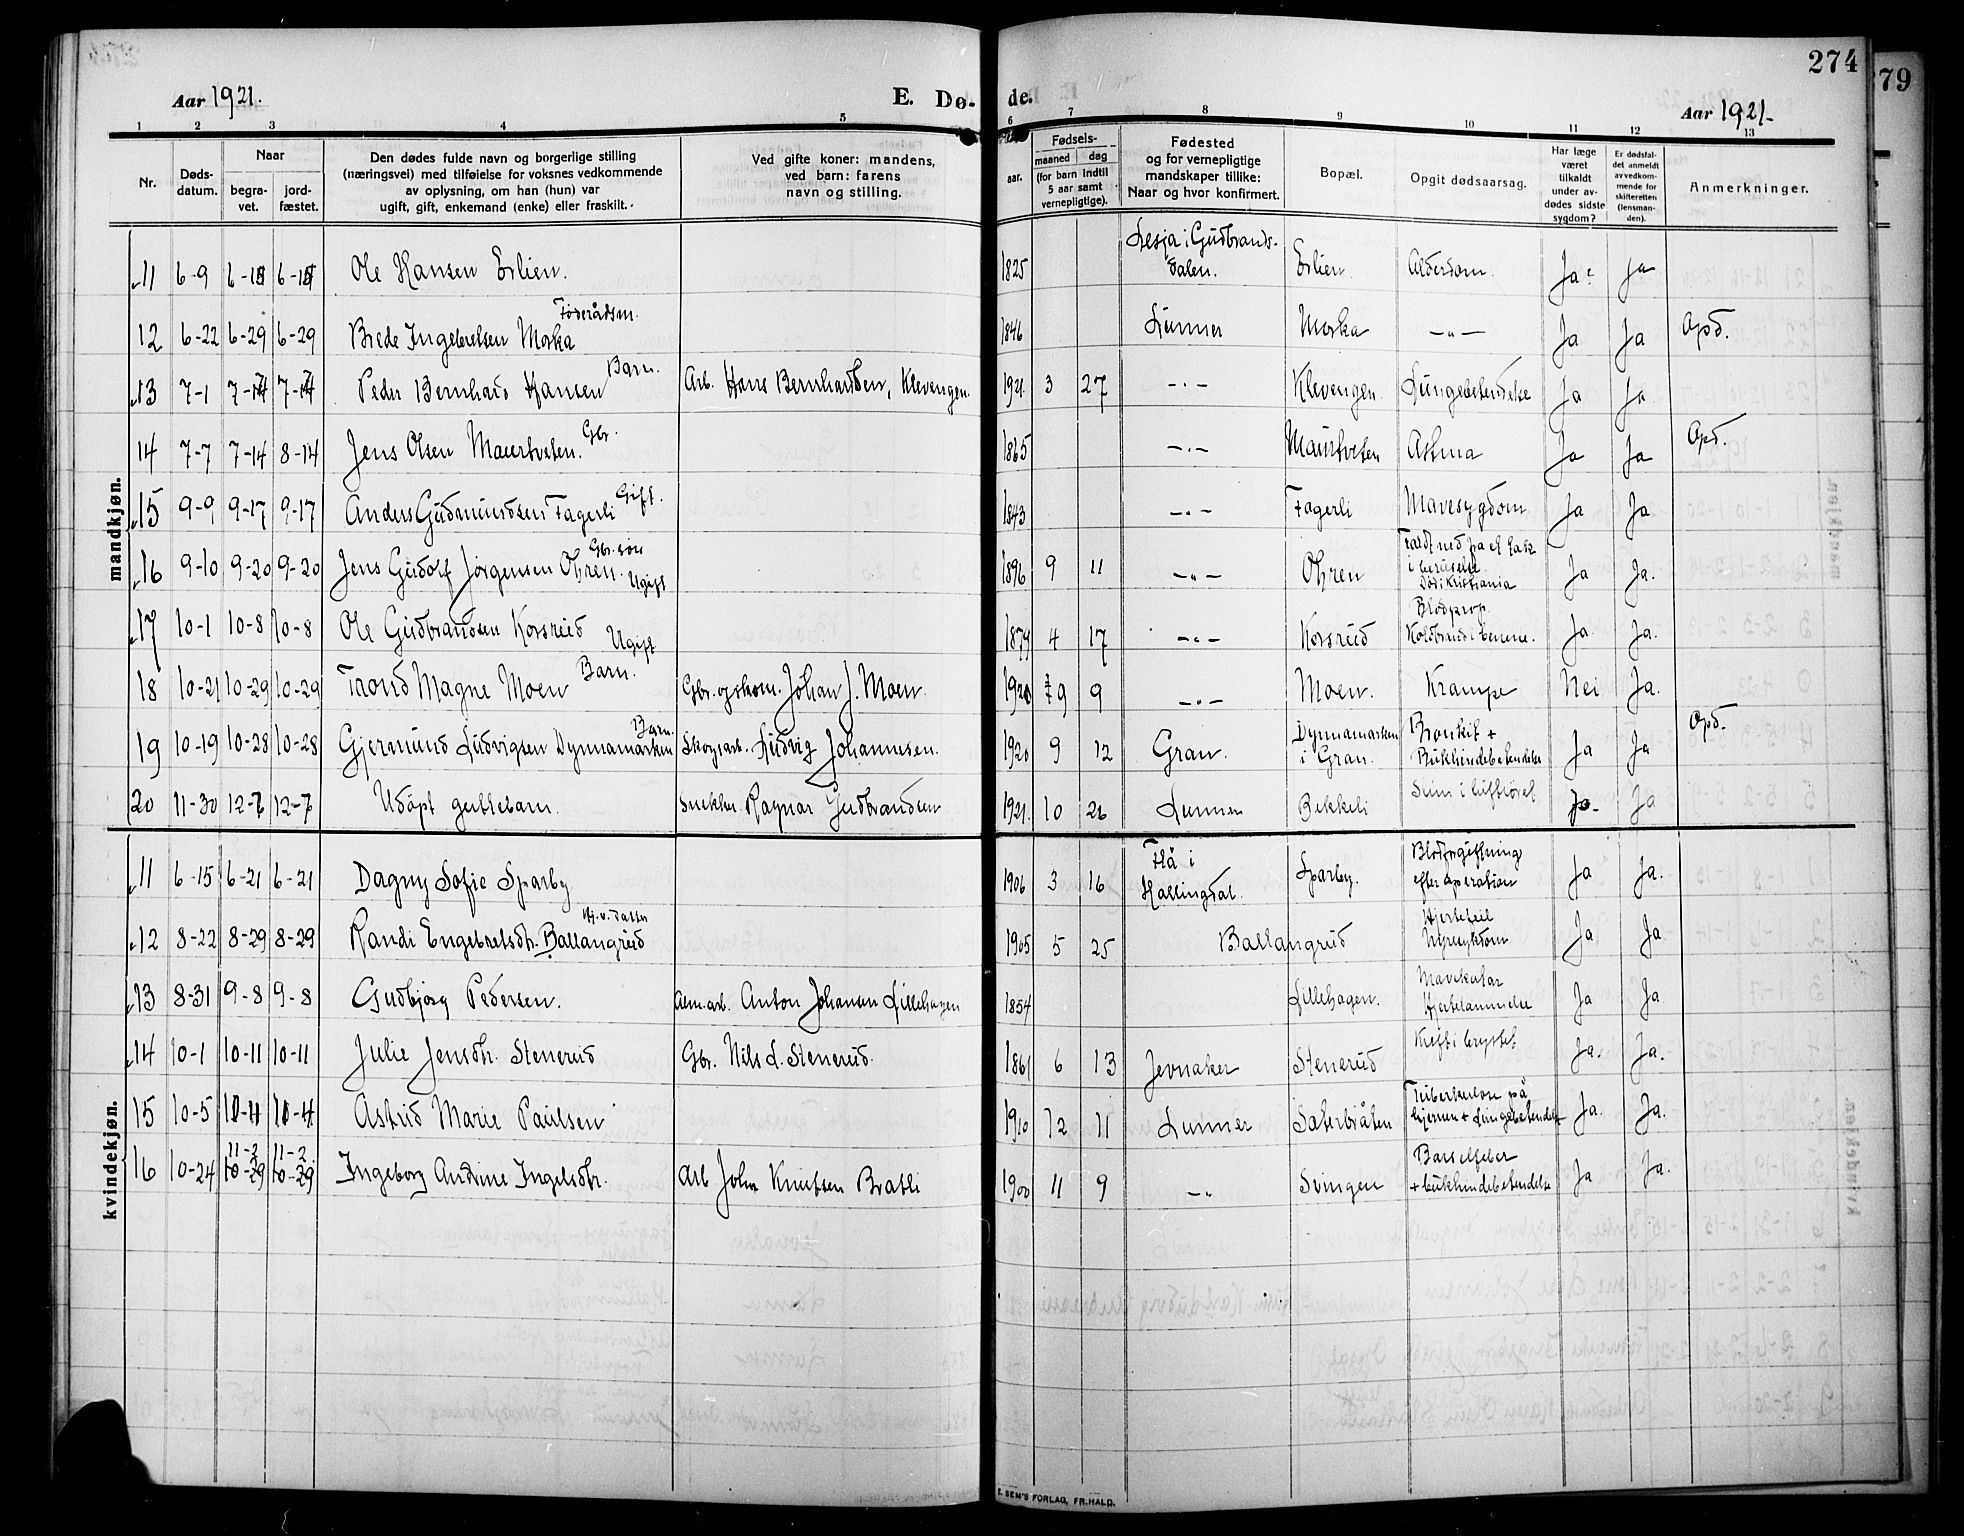 274
79
Aar 1921.
E. Dø-
de.
Aar 1921-
1 2 3 4 5 6 7 8 9 10 11 12 13
Nr.
Døds-
datum.
Naar
begra-
vet.
jord-
fæstet.
Den dødes fulde navn og borgerlige stilling
(næringsvei) med tilføielse for voksnes vedkommende
av oplysning, om han (hun) var
ugift, gift, enkemand (enke) eller fraskilt.
Ved gifte koner: mandens,
ved barn: farens
navn og stilling.
aar.
Fødsels-
maaned dag
(for barn indtil
5 aar samt
vernepligtige).
Fødested
og for vernepligtige
mandskaper tillike:
Naar og hvor konfirmert.
Bopæl.
Opgit dødsaarsag.
Har læge
været
tilkaldt
under av-
dødes sidste
sygdom?
Er dødsfal-
det anmeldt
av vedkom-
mende for
skifteretten
(lensman-
den).
Anmerkninger.
mandkjøn.
11 6-9 Ole Hansen Erlien. 1825 Lesja i Gudbrands-
dalen. Erlien. Alderdom. Ja Ja
12 6-22 6-29 6-29 Brede Ingebretsen Morka Føderådsm. 1846 Lunner Morka -"- Ja Ja Opd.
13 7-1 Peder Bernhard Hansen Barn. Arb. Hans Bernhardsen, Klevengen. 1921. 3 27 -"- Klevengen Lungebetendelse Ja Ja
14 7-7 7-14 8-14 Jens Olsen Maurtveten. Gbr. 1865 -"- Maurtveten Astma Ja Ja Opd.
15 9-9 9-17 9-17 Anders Gudmundsen Fagerli Gift. 1843 -"- Fagerli Mavesygdom Ja Ja
16 9-10 9-20 9-20 Jens Gudolf Jørgensen Ohren. Gbr.søn Ugift 1896 9 11 -"- Ohren Faldt ned fra et tak
i beruselse.
Død i Kristiania Ja Ja.
17 10-1 10-8 10-8 Ole Gudbrandsen Korsrud Ugift 1879 4 17 -"- Korsrud Blodprop
Koldbrand i benene. Ja Ja.
18 10-21 10-29 10-29 Trond Magne Moen Barn. Gbr. og skom. Johan J. Moen. 9 9 -"- Moen. Krampe Nei Ja.
19 10-19 10-28 10-28 Gjermund Ludvigsen Dynnamarken Barn. Skogsarb. Ludvig Johannesen. 1920 9 12 Gran. Dynnamarken
i Gran. Bronkit +
Bukhindebetendelse Ja Ja Opd.
20 11-30 12-7 12-7 Udøpt guttebarn. Snekker Ragnar Gudbrandsen 1921. 10 26 Lunner Bekkeli Slim i luftrøret Ja- Ja
kvindekjøn.
11 6-15 6-21 6-21 Dagny Sofie Sparby 1906 3 16 Flå i
Hallingdal. Sparby. Blodforgiftning
efter operation Ja Ja.
12 8-22 8-29 8-29 Randi Engebretsdtr. Ballangrud datter 1905 5 25 Ballangrud Hjertefeil
Nyresykdom Ja Ja
13 8-31 9-8 9-8 Gudbjørg Pedersen. Alm.arb. Anton Johansen Lillehagen 1854 Lillehagen. Mavekatar
Hjertelammelse Ja Ja
14 10-1 10-11 10-11 Julie Jensdtr. Stenerud Gbr. Nils L. Stenerud. 1861 6 13 Jevnaker Stenerud Kreft i brystet Ja. Ja.
15 10-5 Astrid Marie Paulsen 1910 12 11 Lunner Sæterbråten Tuberkulose på
hjernen + Lungebetendelse Ja. Ja.
11-2 11-2
16 10-24 10-29 10-29 Ingeborg Andrine Ingelsdtr. Arb John Knutsen Bratli 1900 11 9 -"- Svingen Barselfeber
+ bukhindebetendelse Ja Ja.
E. SEM'S FORLAG, FR.HALD.